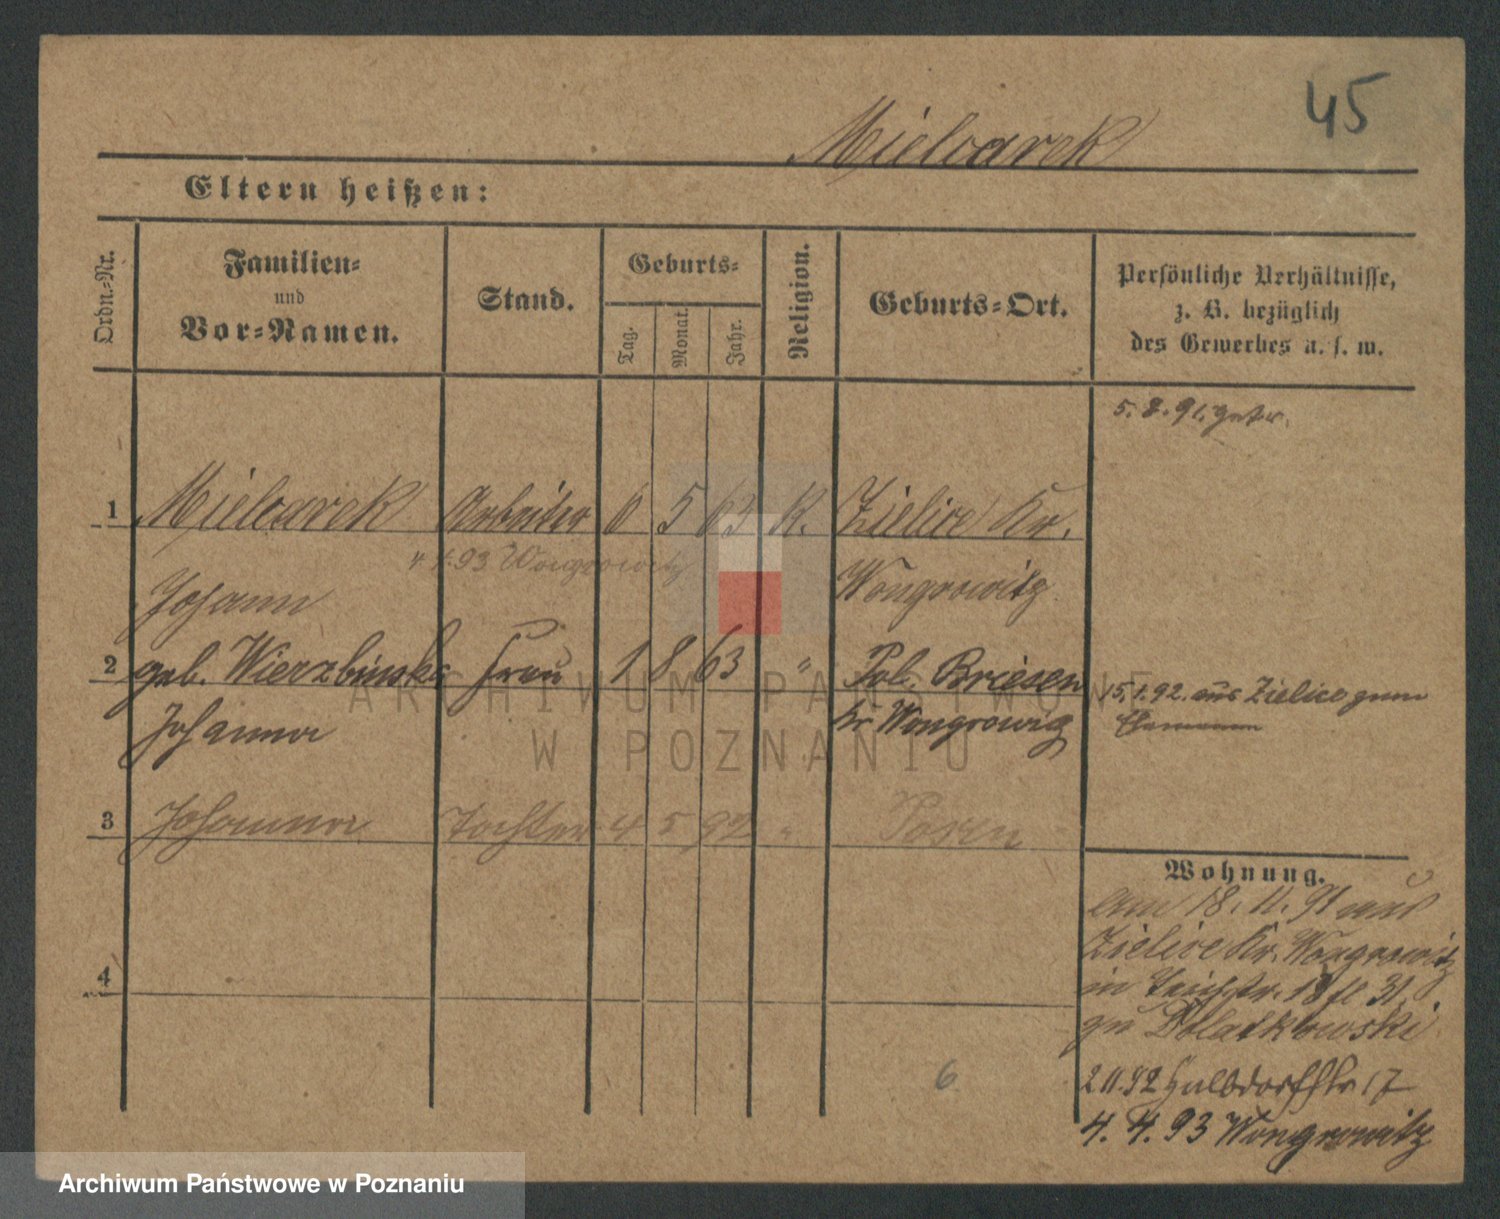 45
Mielcarek
Eltern heißen:
Ordn.-Nr.
Familien-
und
Vor-Namen.
Stand.
Geburts-
Tag.
Monat.
Jahr.
Religion.
Geburts-Ort.
Persönliche Verhältnisse,
z. B. bezüglich
des Gewerbes u. s. w.
5. 8. 91. getr.
1 Mielcarek Arbeiter 6 5 63 K. Zielice Kr.
4 4. 93 Wongrowitz
Johann Wongrowitz
2 geb. Wierzbinska Frau 1 8 63 " Pol. Briesen
15.1.92. aus Zielice zum
Ehemann
Johanna Kr. Wongrowitz
3 Johanna Tochter 4 5 92 " Posen
4
Wohnung.
am 18. 11. 91 aus
Zielice Kr. Wongrowitz
in Teichstr. 18
zu Dolatkowski
2 11. 92 Halbdorfstr 17
4. 4. 93 Wongrowitz
6
ARCHIWUM PAŃSTWOWE
W POZNANIU
Archiwum Państwowe w Poznaniu